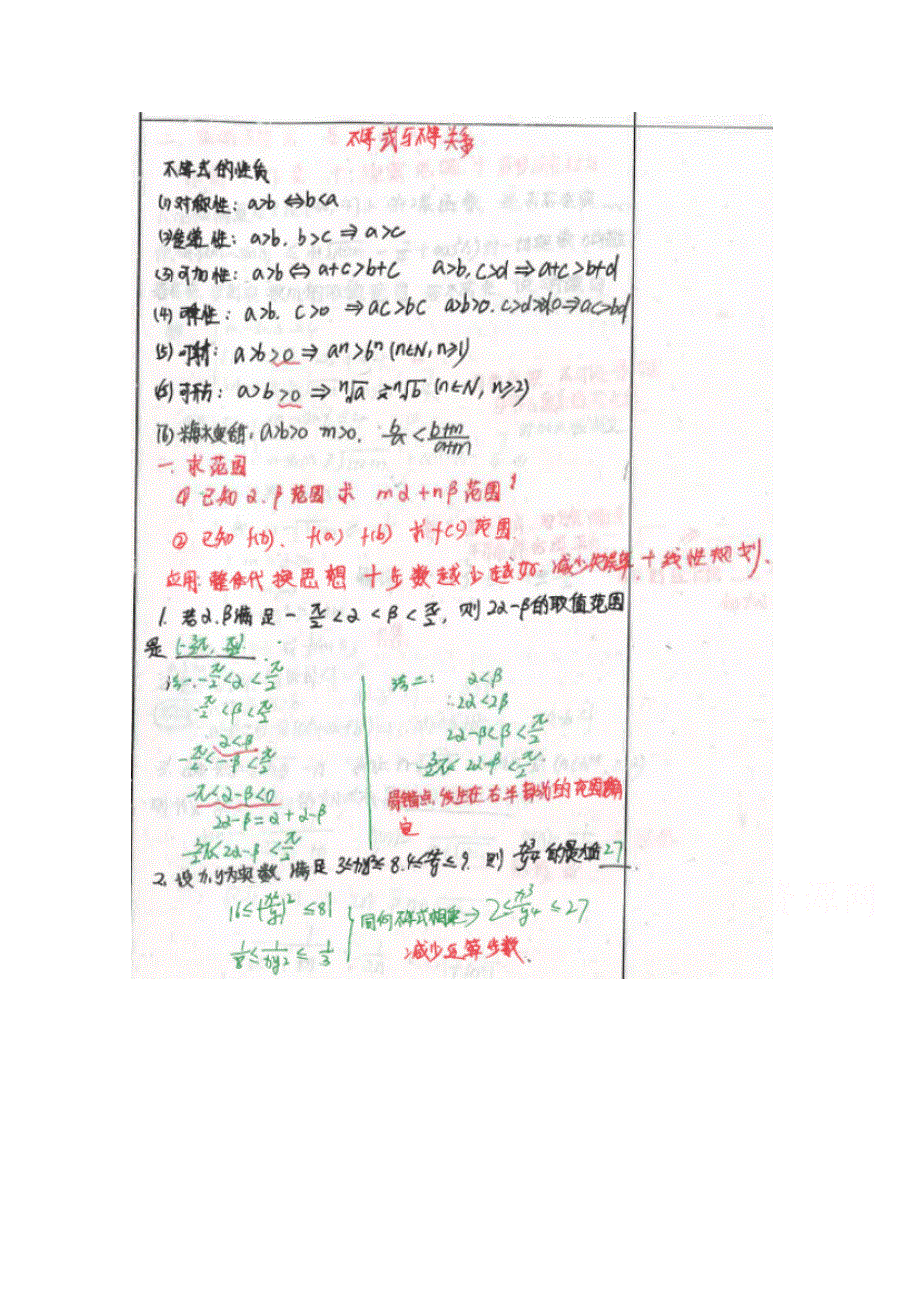 不等式与不等关系
不等式的性质
(1)对称性: a>b ⇔ b<a
(2)传递性: a>b, b>c ⇒ a>c
(3)可加性: a>b ⇔ a+c>b+c a>b, c>d ⇒ a+c>b+d
(4)可乘性: a>b, c>0 ⇒ ac>bc a>b>0, c>d>0 ⇒ ac>bd
(5)可乘方: a>b>0 ⇒ aⁿ>bⁿ (n∈N, n≥1)
(6)可开方: a>b>0 ⇒ ⁿ√a > ⁿ√b (n∈N, n≥2)
a>b>0 m>0, b/a < (b+m)/(a+m)
一. 求范围
① 已知 α.β 范围求 mα+nβ 范围
② 已知 f(b)、f(a) f(b) 求 f(c) 范围.
应用: 整体代换思想 + 步数越少越好 减少失误率 + 线性规划.
1. 若α.β满足 -π/2<α<β<π/2, 则2α-β的取值范围
是
法一: -π/2<α<π/2
-π/2<β<π/2
α<β
-π/2<-β<π/2
-π<α-β<0
2α-β=α+α-β
-3/2π<2α-β<π/2
法二: α<β
∴2α<2β
2α-β<β<π/2
-3/2π<2α-β<π/2
易错点
定
2. 设x,y为实数, 满足 3≤xy²≤8, 4≤x²/y≤9. 则 x³/y⁴ 的最大值 27.
16≤(x²/y)²≤81
1/8≤1/xy²≤1/3
同向不等式相乘→ 2≤x³/y⁴≤27
减少运算步数.